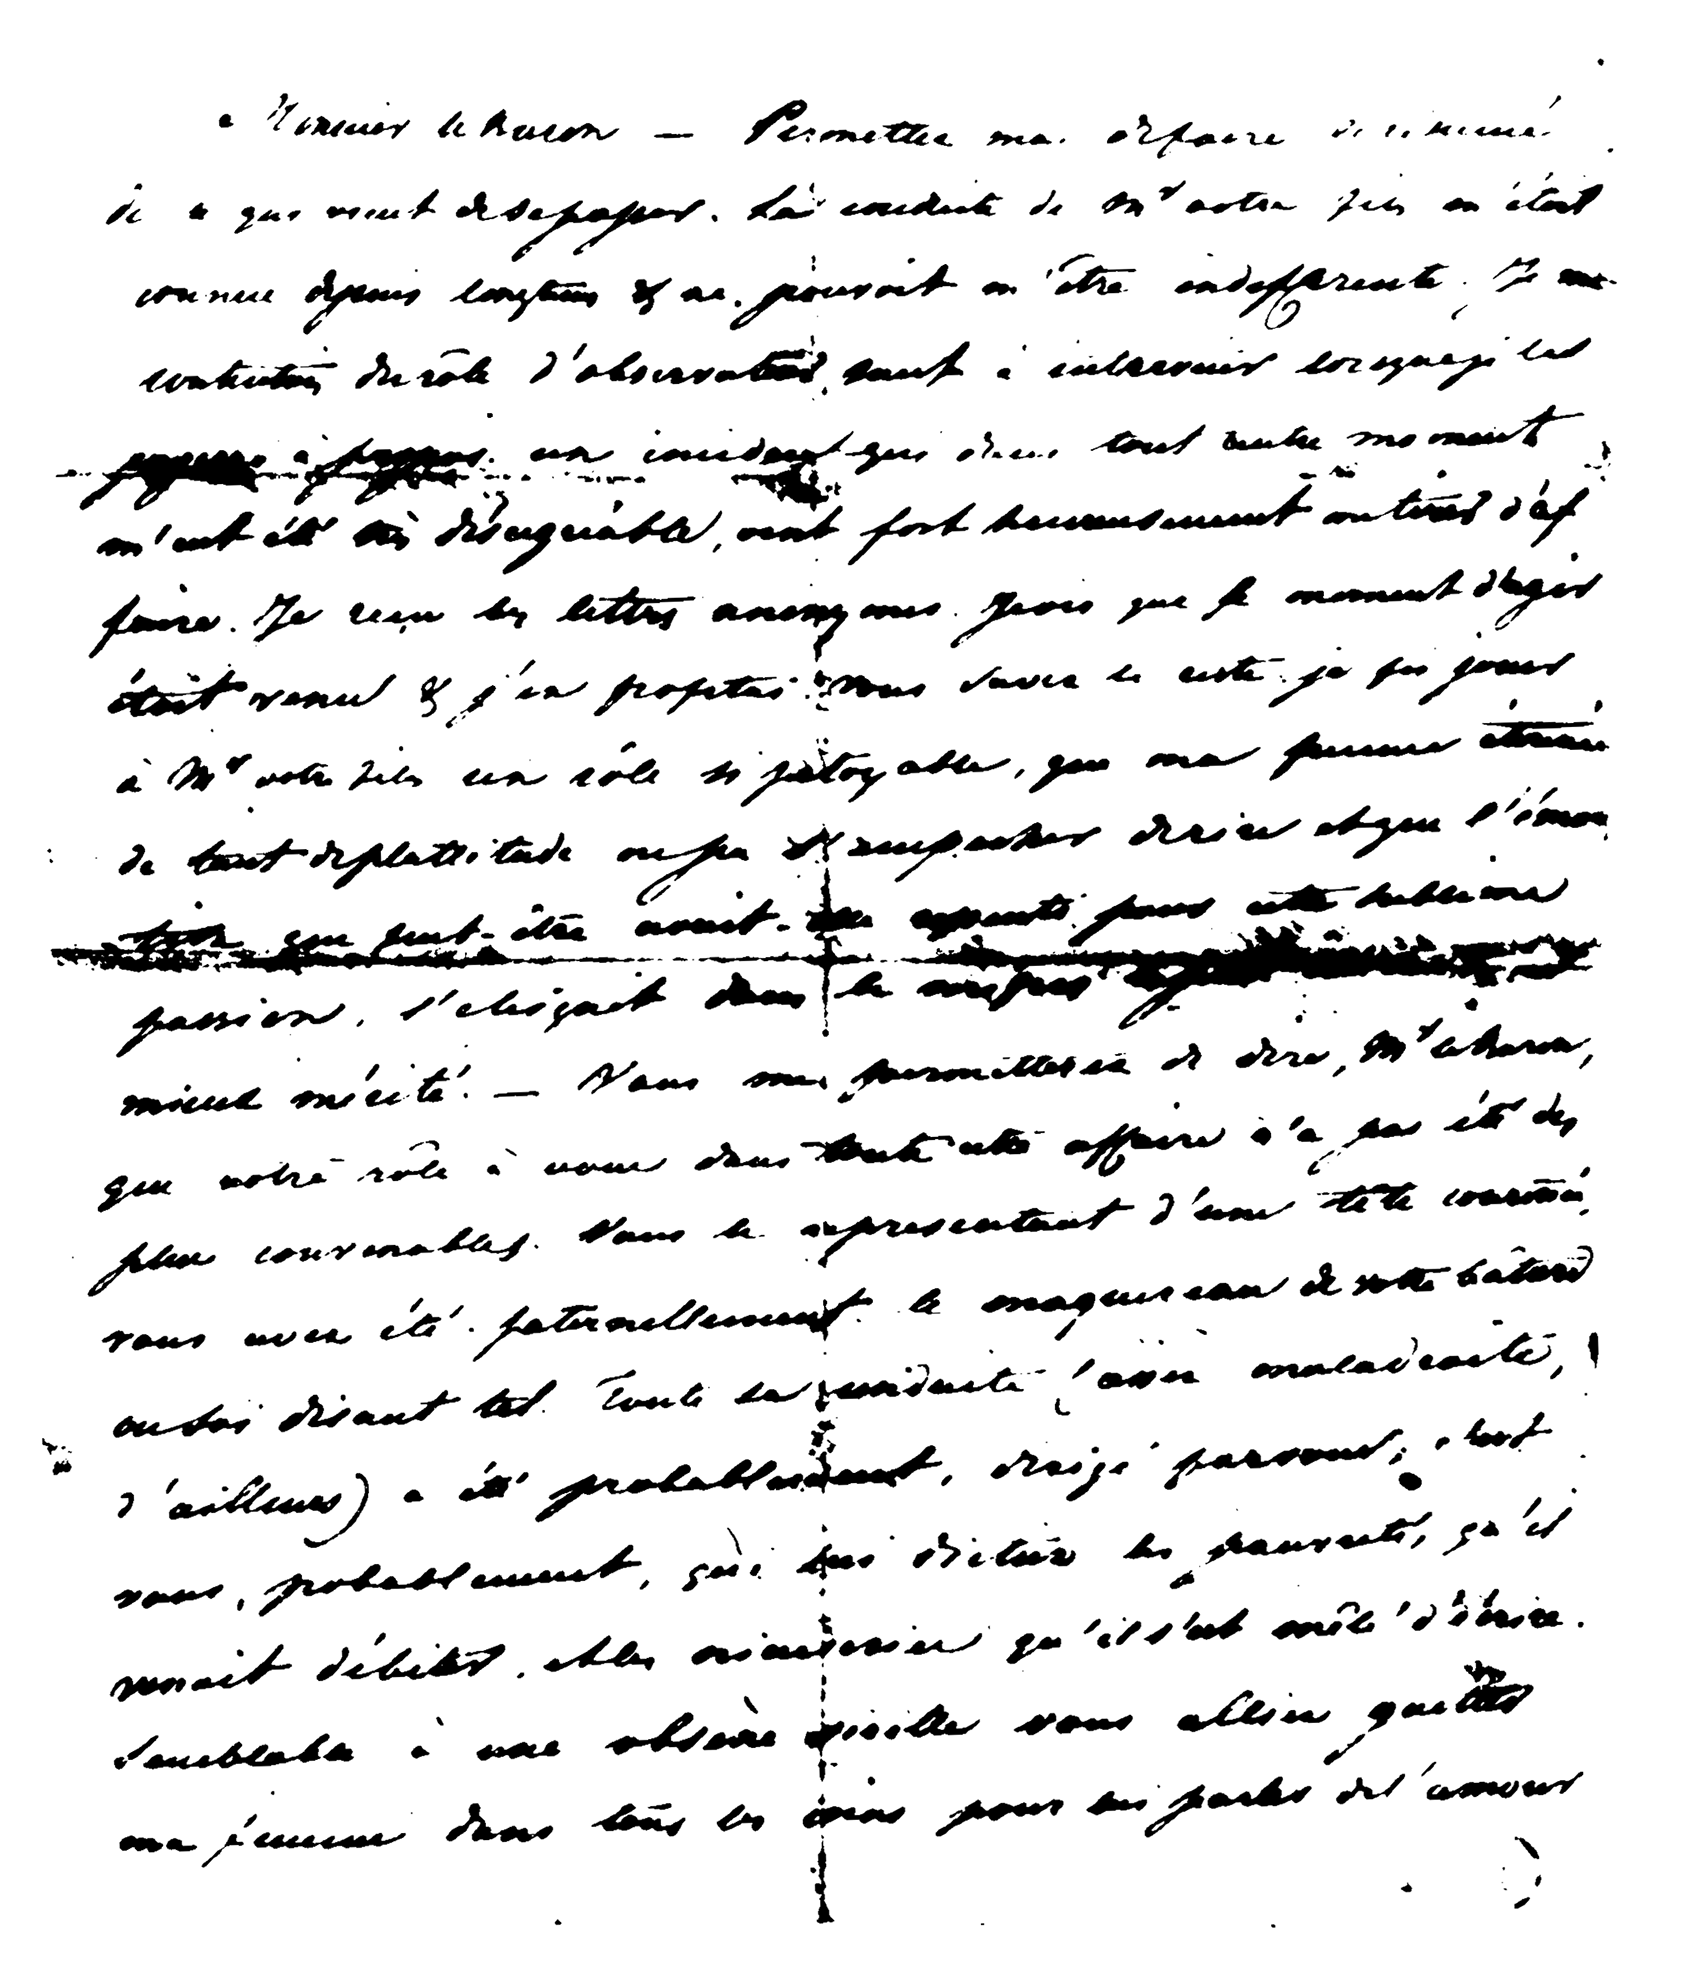 Monsieur le Baron — Permettez moi de faire le résumé
de ce qui vient de se passer. La conduite de Mr votre fils m'était
connue depuis longtems & ne pouvoit m'être indifferente. Je me
contentais du rôle d'observateur, sauf à intervenir lorsque je le
à propos. un incident qui dans tout autre moment
m'eut été très désagréable, vint fort heureusement me tirer d'af
faire. Je reçu les lettres anonymes. Je vis que le moment d'agir
était venu & j'en profitai. Vous savez le reste: je fis jouer
à Mr votre fils un rôle si pitoyable, que ma femme étonnée
de tant de plattitude ne pu s'empecher de rire et que l'émo
tion que peut-être avait-elle ressentie pour cette sublime
passion, s'éteignit dans le mépris
mieux mérité. — Vous me permetterez de dire, Mr le Baron,
que votre rôle à vous dans toute cette affaire n'a pas été des
plus convenables. Vous le representant d'une tête couronnée,
vous avez été paternellement le maquereau de votre bâtard
ou soi disant tel. Toute sa conduite (assez maladroite,
d'ailleurs) a été probablement, dirigé par vous; c'est
vous, probablement, qui lui dictiez les pauvretés, qu'il
venait débiter, et les niaiseries qu'il s'est mêlé d'écrire.
Semblable à une obscène vieille vous alliez guetter
ma femme dans tous les coins pour lui parler de l'amour